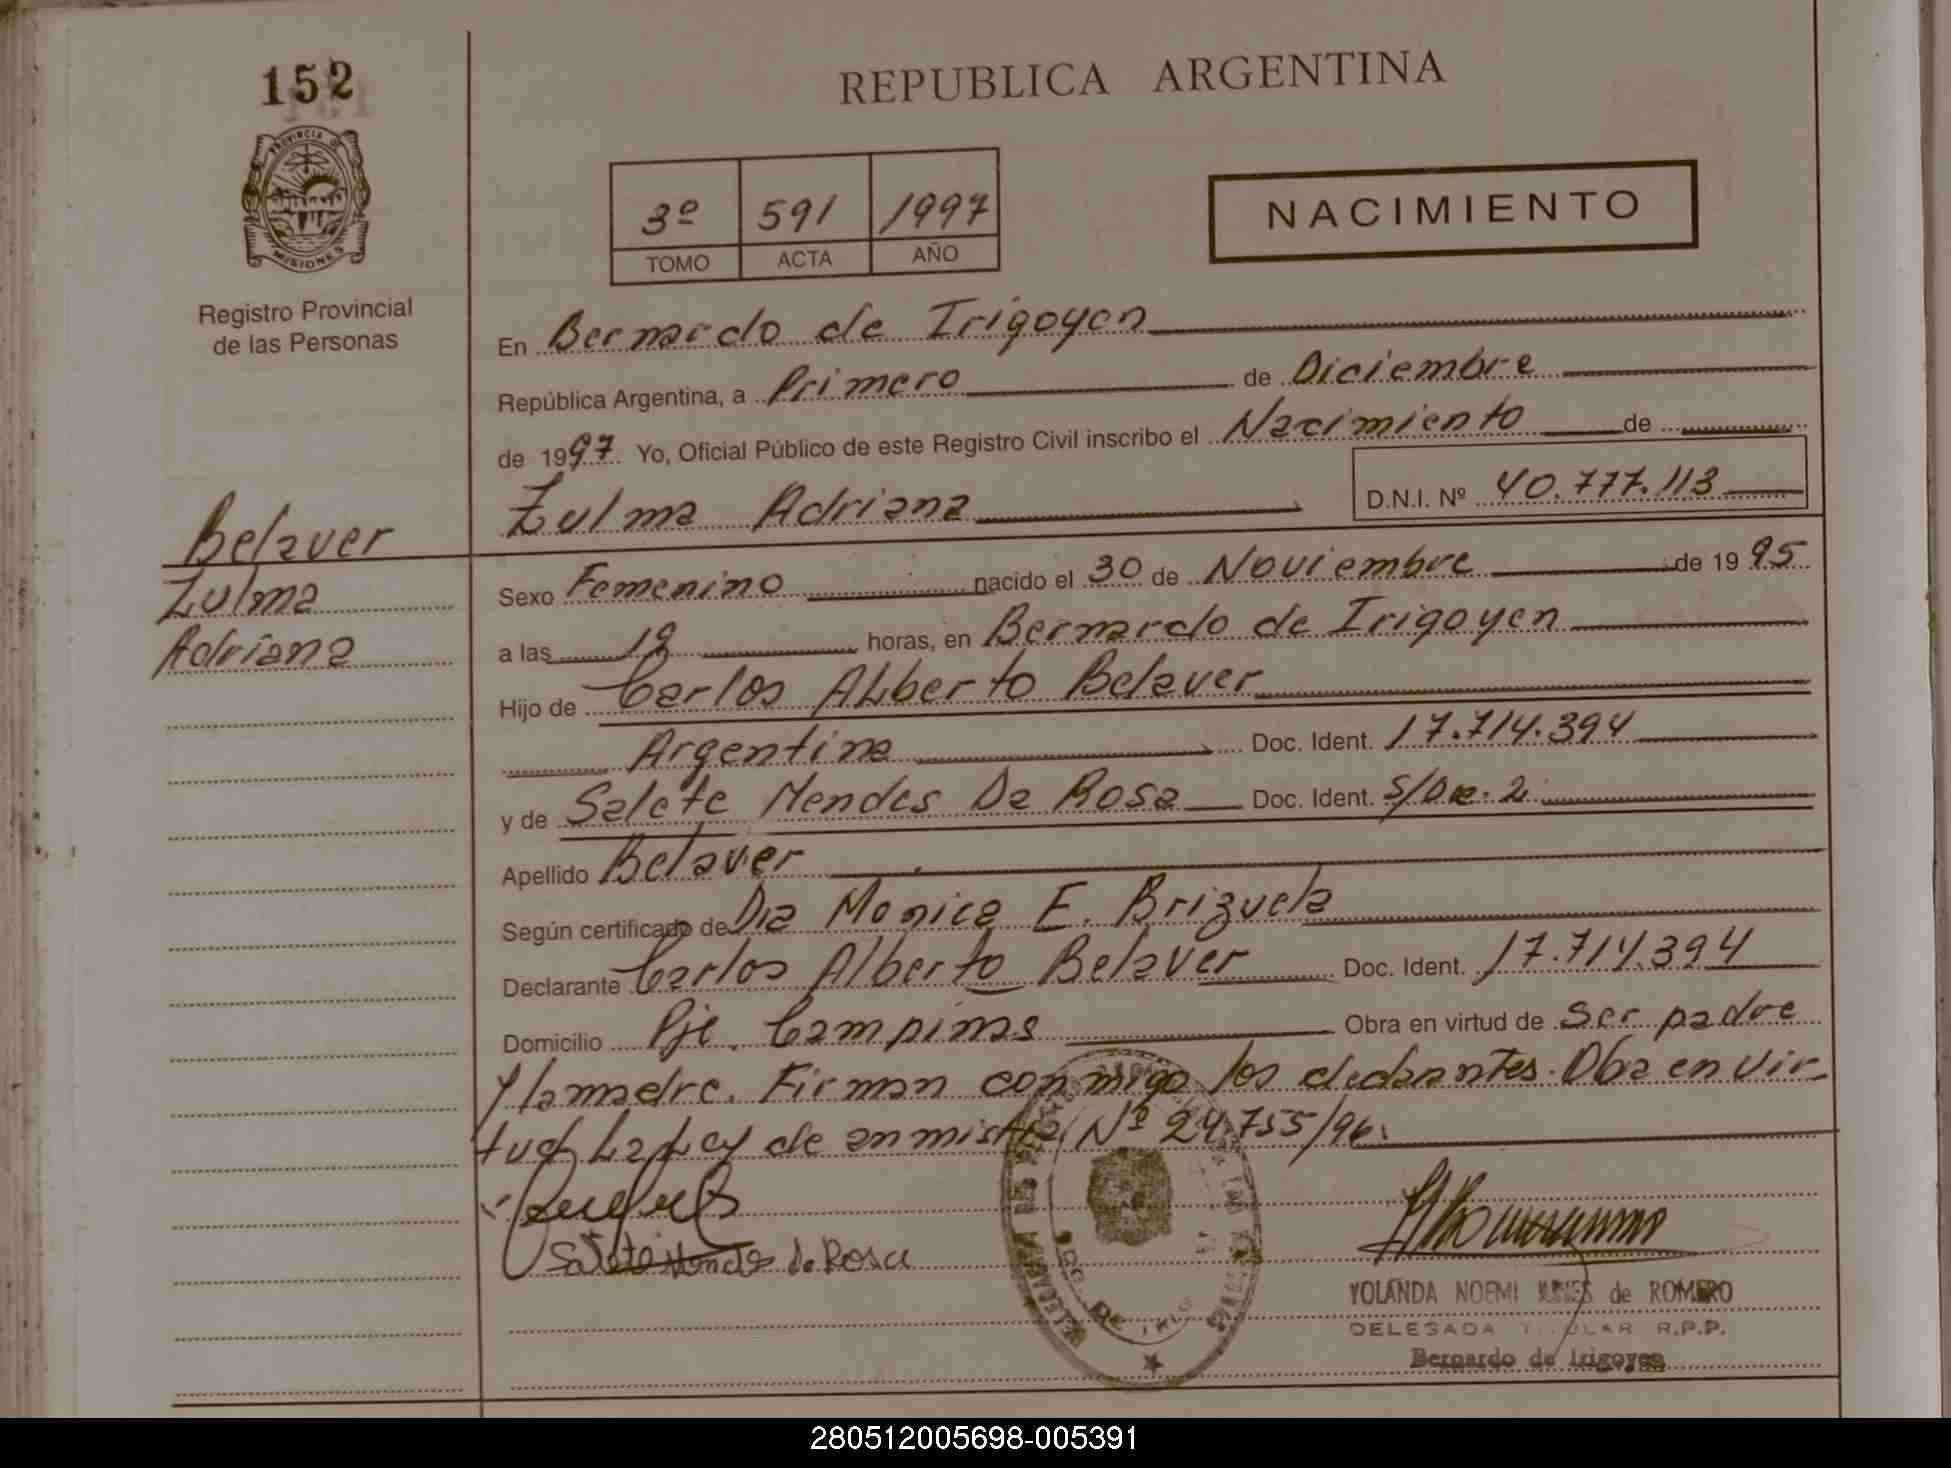 152
REPUBLICA ARGENTINA
PROVINCIA DE
MISIONES
Registro Provincial
de las Personas
3º 591 1997
TOMO ACTA AÑO
NACIMIENTO
En Bernardo de Irigoyen
República Argentina, a Primero de Diciembre
de 1997. Yo, Oficial Público de este Registro Civil inscribo el Nacimiento de
Zulma Adriana D.N.I. Nº 40.777.113
Belaver
Zulma
Adriana
Sexo Femenino nacido el 30 de Noviembre de 1995
a las 19 horas, en Bernardo de Irigoyen
Hijo de Carlos Alberto Belaver
Argentina Doc. Ident. 17.714.394
y de Salete Mendes Da Rosa Doc. Ident.
Apellido Belaver
Según certificado de Dra Monica E. Brizuela
Declarante Carlos Alberto Belaver Doc. Ident. 17.714.394
Domicilio Pje. Campinas Obra en virtud de ser padre
y la madre. Firman conmigo los declarantes. Obra en vir-
tud La Ley de anmistia Nº 24.755/96.
Salete Mendes da Rosa
YOLANDA NOEMI de ROMERO
DELEGADA TITULAR R.P.P.
Bernardo de Irigoyen
280512005698-005391